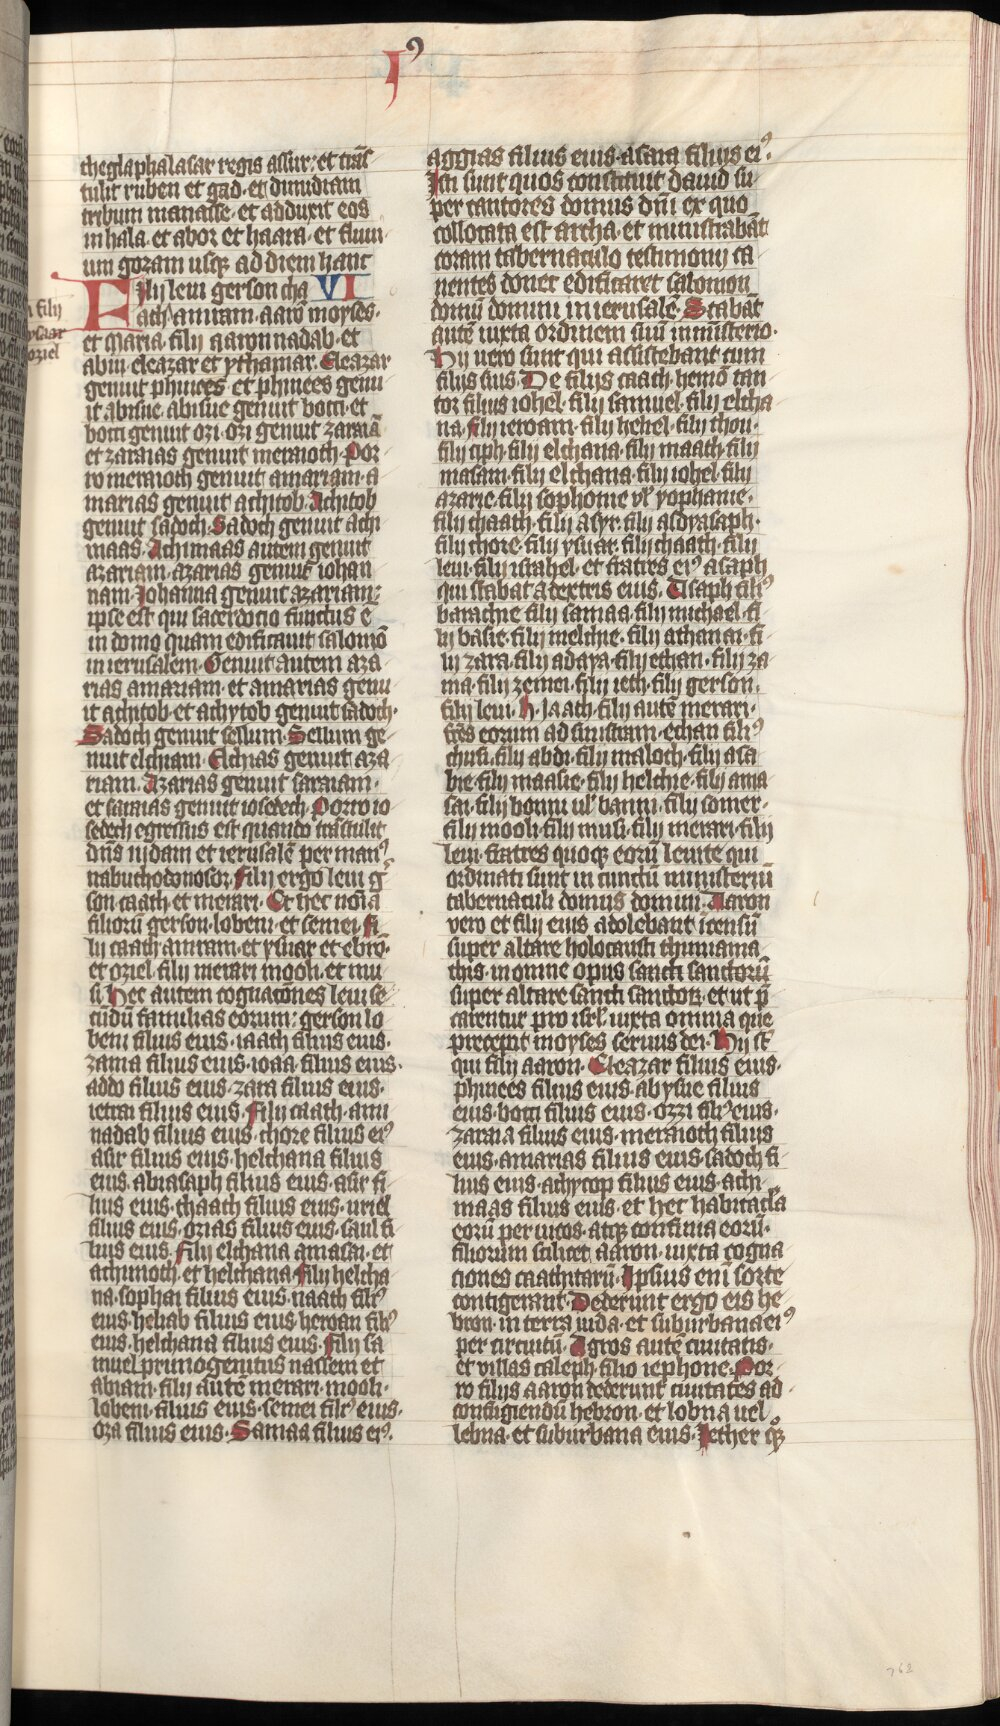 I⁹
theglaphalasar regis assur; et trās
tulit ruben et gad· et dimidiam
tribum manasse· et adduxit eos
in hala· et abor et haara· et fluui
um gozam usq; ad diem hanc
Filij leui gerson cha VI
ath amram· aarō moyses·
et Maria· filij aaron nadab· et
abiu· eleazar et ythamar· Eleazar
genuit phinees· et phinees genu
it abisue· abisue genuit botti· et
botti genuit ozi· ozi genuit zaraiā
et zaraias genuit meraioth· Por
ro meraioth genuit amariam· a
marias genuit achitob· Achitob
genuit sadoch· Sadoch genuit achi
maas· Achimaas autem genuit
azariam· azarias genuit iohan
nam· Johanna genuit azariam·
ipse est qui sacerdocio functus ē
in domo quam edificauit salomō
in ierusalem· Genuit autem aza
rias amariam· et amarias genu
it achitob· et achytob genuit sadoch·
Sadoch genuit sellum· Sellum ge
nuit elchiam· Elchias genuit aza
riam· Azarias genuit saraiam·
et saraias genuit iosedech· Porro io
sedech egressus est quando trāstulit
dn̄s iudam et ierusalē per man⁹
nabuchodonosor· filij ergo leui g
son caath et merari· Et hec noīa
filiorū gerson· lobeni· et semei· fi
lij caath amram· et ysuar et ebrō·
et oziel· filij merari mooli· et mu
si· Hec autem cognatōnes leui se
cūdū familias eorum; gerson lo
beni filius eius· iaath filius eius·
zama filius eius· ioaa· filius eius·
addo filius eius· zara filius eius·
ietrai filius eius· filij caath· ami
nadab filius eius· chore filius ei⁹
asir filius eius· helchana filius
eius· abiasaph filius eius· asir fi
lius eius· thaath filius eius· uriel
filius eius· ozias filius eius· saul fi
lius eius· filij elchana amasai· et
achimoth· et helchana· filij helcha
na· sophai filius eius· naath fili⁹
eius· heliab filius eius· heroan fili⁹
eius· helchana filius eius· filij sa
muel primogenitus nassem et
abiam· filij autē merari· mooli·
lobeni· filius eius· semei fili⁹ eius·
oza filius eius· Samaa filius ei⁹·
n filij
ysaar
oziel
aggias filius eius· asaia filius ei⁹·
Isti sunt quos constituit dauid su
per cantores domus dn̄i ex quo
collocata est archa· et ministrabāt
coram tabernaculo testimonij ca
nentes donec edificaret salomon
domū domini in ierusalē· Stabāt
autē iuxta ordinem suū in misterio·
Hij uero sunt qui assistebant cum
filijs suis· De filijs caath· hemō can
tor filius iohel· filij samuel· filij elcha
na· filij ieroam· filij heliel· filij thou·
filij ciph· filij elchana· filij maath· filij
masam· filij elchana· filij iohel· filij
azarie· filij sophonie ul̄ yophanie·
filij thaath· filij asyr· filij asbyasaph·
filij chore· filij ysuar· filij chaath· filij
leui· filij israhel· et fratres ei⁹ asaph
qui stabat a dextris eius· Asaph fili⁹
barachie filij samaa· filij michael· fi
lij basie· filij melchie· filij athanai· fi
lij zara· filij adaya· filij ethan· filij za
ma· filij zemei· filij ieth· filij gerson·
filij leui· Haath· filij autē merari·
fr̄es eorum ad sinistram· ethan fili⁹
chusi· filij abdi· filij maloch· filij asa
bie· filij maasie· filij helchie· filij ama
sai· filij bonni ul̄ banni· filij somer·
filij mooli· filij musi· filij merari· filij
leui· fratres quoq; eorū leuite qui
ordinati sunt in cunctū ministeriū
tabernaculi domus domini· Aaron
vero et filij eius adolebant īcensū
super altare holocausti thimiama
this· in omne opus sancti sanctorū
super altare sancti sanctoꝝ· et ut p̄
carentur pro isrl̄ iuxta omnia que
precepit moyses seruus dei· Hij sc̄
qui filij aaron· Eleazar filius eius·
phinees filius eius· abysue filius
eius· botti filius eius· ozzi fili⁹ eius·
zaraia filius eius· meraioth filius
eius· amarias filius eius· sadoch fi
lius eius· achytop filius eius· achi
maas filius eius· et hec habitacl̄a
eorū per uicos· atq; confinia eorū·
filiorum scilicet aaron· iuxta cogna
ciones caathitarū· Ipsius enī sorte
contigerant· Dederunt ergo eis he
bron· in terra iuda· et suburbana ei⁹
per circuitū· Agros autē ciuitatis·
et villas caleph· filio iephone· Por
ro filijs aaron dederunt ciuitates ad
confugiendū hebron· et lobna uel
lebna· et suburbana eius· Jether q̨
762